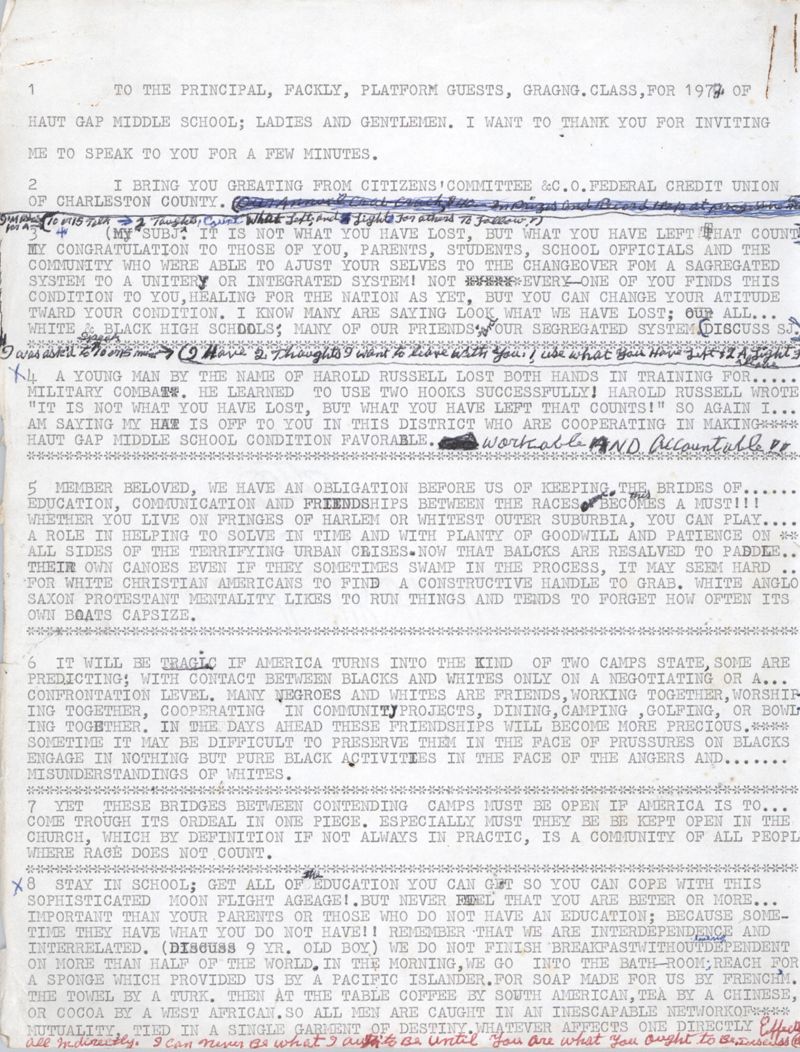 1 TO THE PRINCIPAL, FACKLY, PLATFORM GUESTS, GRAGNG.CLASS,FOR 197 OF
HAUT GAP MIDDLE SCHOOL; LADIES AND GENTLEMEN. I WANT TO THANK YOU FOR INVITING
ME TO SPEAK TO YOU FOR A FEW MINUTES.
2 I BRING YOU GREATING FROM CITIZENS'COMMITTEE &C.O.FEDERAL CREDIT UNION
OF CHARLESTON COUNTY.
To 15 Talk → 2 Taughts, Count What Left, and a light For others To Follow.)
3 (MY SUBJ. IT IS NOT WHAT YOU HAVE LOST, BUT WHAT YOU HAVE LEFT THAT COUNT
MY CONGRATULATION TO THOSE OF YOU, PARENTS, STUDENTS, SCHOOL OFFICIALS AND THE
COMMUNITY WHO WERE ABLE TO AJUST YOUR SELVES TO THE CHANGEOVER FOM A SAGREGATED
SYSTEM TO A UNITERY OR INTEGRATED SYSTEM! NOT ***** EVERY—ONE OF YOU FINDS THIS
CONDITION TO YOU,HEALING FOR THE NATION AS YET, BUT YOU CAN CHANGE YOUR ATITUDE
TWARD YOUR CONDITION. I KNOW MANY ARE SAYING LOOK WHAT WE HAVE LOST; OUR ALL...
WHITE & BLACK HIGH SCHOOLS; MANY OF OUR FRIENDS and OUR SEGREGATED SYSTEM.(DISCUSS SJ.
I was ask'd to Speak 10 or 15 mins → (I Have 2 Thoughts I want to leave with You. 1 use what You Have Left & 2 A Light
X4 A YOUNG MAN BY THE NAME OF HAROLD RUSSELL LOST BOTH HANDS IN TRAINING FOR......
MILITARY COMBAT*. HE LEARNED TO USE TWO HOOKS SUCCESSFULLY! HAROLD RUSSELL WROTE
"IT IS NOT WHAT YOU HAVE LOST, BUT WHAT YOU HAVE LEFT THAT COUNTS!" SO AGAIN I...
AM SAYING MY HAT IS OFF TO YOU IN THIS DISTRICT WHO ARE COOPERATING IN MAKING****
HAUT GAP MIDDLE SCHOOL CONDITION FAVORABLE. workable AND Accountable !!
5 MEMBER BELOVED, WE HAVE AN OBLIGATION BEFORE US OF KEEPING THE BRIDES OF......
EDUCATION, COMMUNICATION AND FRIENDSHIPS BETWEEN THE RACES this BECOMES A MUST!!!
WHETHER YOU LIVE ON FRINGES OF HARLEM OR WHITEST OUTER SUBURBIA, YOU CAN PLAY....
A ROLE IN HELPING TO SOLVE IN TIME AND WITH PLANTY OF GOODWILL AND PATIENCE ON **
ALL SIDES OF THE TERRIFYING URBAN CRISES.NOW THAT BALCKS ARE RESALVED TO PADDLE..
THEIR OWN CANOES EVEN IF THEY SOMETIMES SWAMP IN THE PROCESS, IT MAY SEEM HARD ..
FOR WHITE CHRISTIAN AMERICANS TO FIND A CONSTRUCTIVE HANDLE TO GRAB. WHITE ANGLO
SAXON PROTESTANT MENTALITY LIKES TO RUN THINGS AND TENDS TO FORGET HOW OFTEN ITS
OWN BOATS CAPSIZE.
6 IT WILL BE TRAGIC IF AMERICA TURNS INTO THE KIND OF TWO CAMPS STATE,SOME ARE
PREDICTING; WITH CONTACT BETWEEN BLACKS AND WHITES ONLY ON A NEGOTIATING OR A...
CONFRONTATION LEVEL. MANY NEGROES AND WHITES ARE FRIENDS,WORKING TOGETHER,WORSHIP-
ING TOGETHER, COOPERATING IN COMMUNITY PROJECTS, DINING,CAMPING ,GOLFING, OR BOWL-
ING TOGETHER. IN THE DAYS AHEAD THESE FRIENDSHIPS WILL BECOME MORE PRECIOUS.****
SOMETIME IT MAY BE DIFFICULT TO PRESERVE THEM IN THE FACE OF PRUSSURES ON BLACKS
ENGAGE IN NOTHING BUT PURE BLACK ACTIVITIES IN THE FACE OF THE ANGERS AND.......
MISUNDERSTANDINGS OF WHITES.
7 YET THESE BRIDGES BETWEEN CONTENDING CAMPS MUST BE OPEN IF AMERICA IS TO...
COME TROUGH ITS ORDEAL IN ONE PIECE. ESPECIALLY MUST THEY BE BE KEPT OPEN IN THE
CHURCH, WHICH BY DEFINITION IF NOT ALWAYS IN PRACTIC, IS A COMMUNITY OF ALL PEOPL
WHERE RACE DOES NOT COUNT.
X8 STAY IN SCHOOL; GET ALL OF the EDUCATION YOU CAN GET SO YOU CAN COPE WITH THIS
SOPHISTICATED MOON FLIGHT AGEAGE!.BUT NEVER FEEL THAT YOU ARE BETER OR MORE...
IMPORTANT THAN YOUR PARENTS OR THOSE WHO DO NOT HAVE AN EDUCATION; BECAUSE SOME-
TIME THEY HAVE WHAT YOU DO NOT HAVE!! REMEMBER THAT WE ARE INTERDEPENDENCE AND
INTERRELATED. (DISCUSS 9 YR. OLD BOY) WE DO NOT FINISH BREAKFASTWITHOUT being DEPENDENT
ON MORE THAN HALF OF THE WORLD.IN THE MORNING,WE GO INTO THE BATH—ROOM;REACH FOR
A SPONGE WHICH PROVIDED US BY A PACIFIC ISLANDER.FOR SOAP MADE FOR US BY FRENCHM.
THE TOWEL BY A TURK. THEN AT THE TABLE COFFEE BY SOUTH AMERICAN,TEA BY A CHINESE,
OR COCOA BY A WEST AFRICAN.SO ALL MEN ARE CAUGHT IN AN INESCAPABLE NETWORKOF****
MUTUALITY, TIED IN A SINGLE GARMENT OF DESTINY.WHATEVER AFFECTS ONE DIRECTLY Effects
all Indirectly. I can never Be what I aught to Be until You are what You ought to Be. Discuss